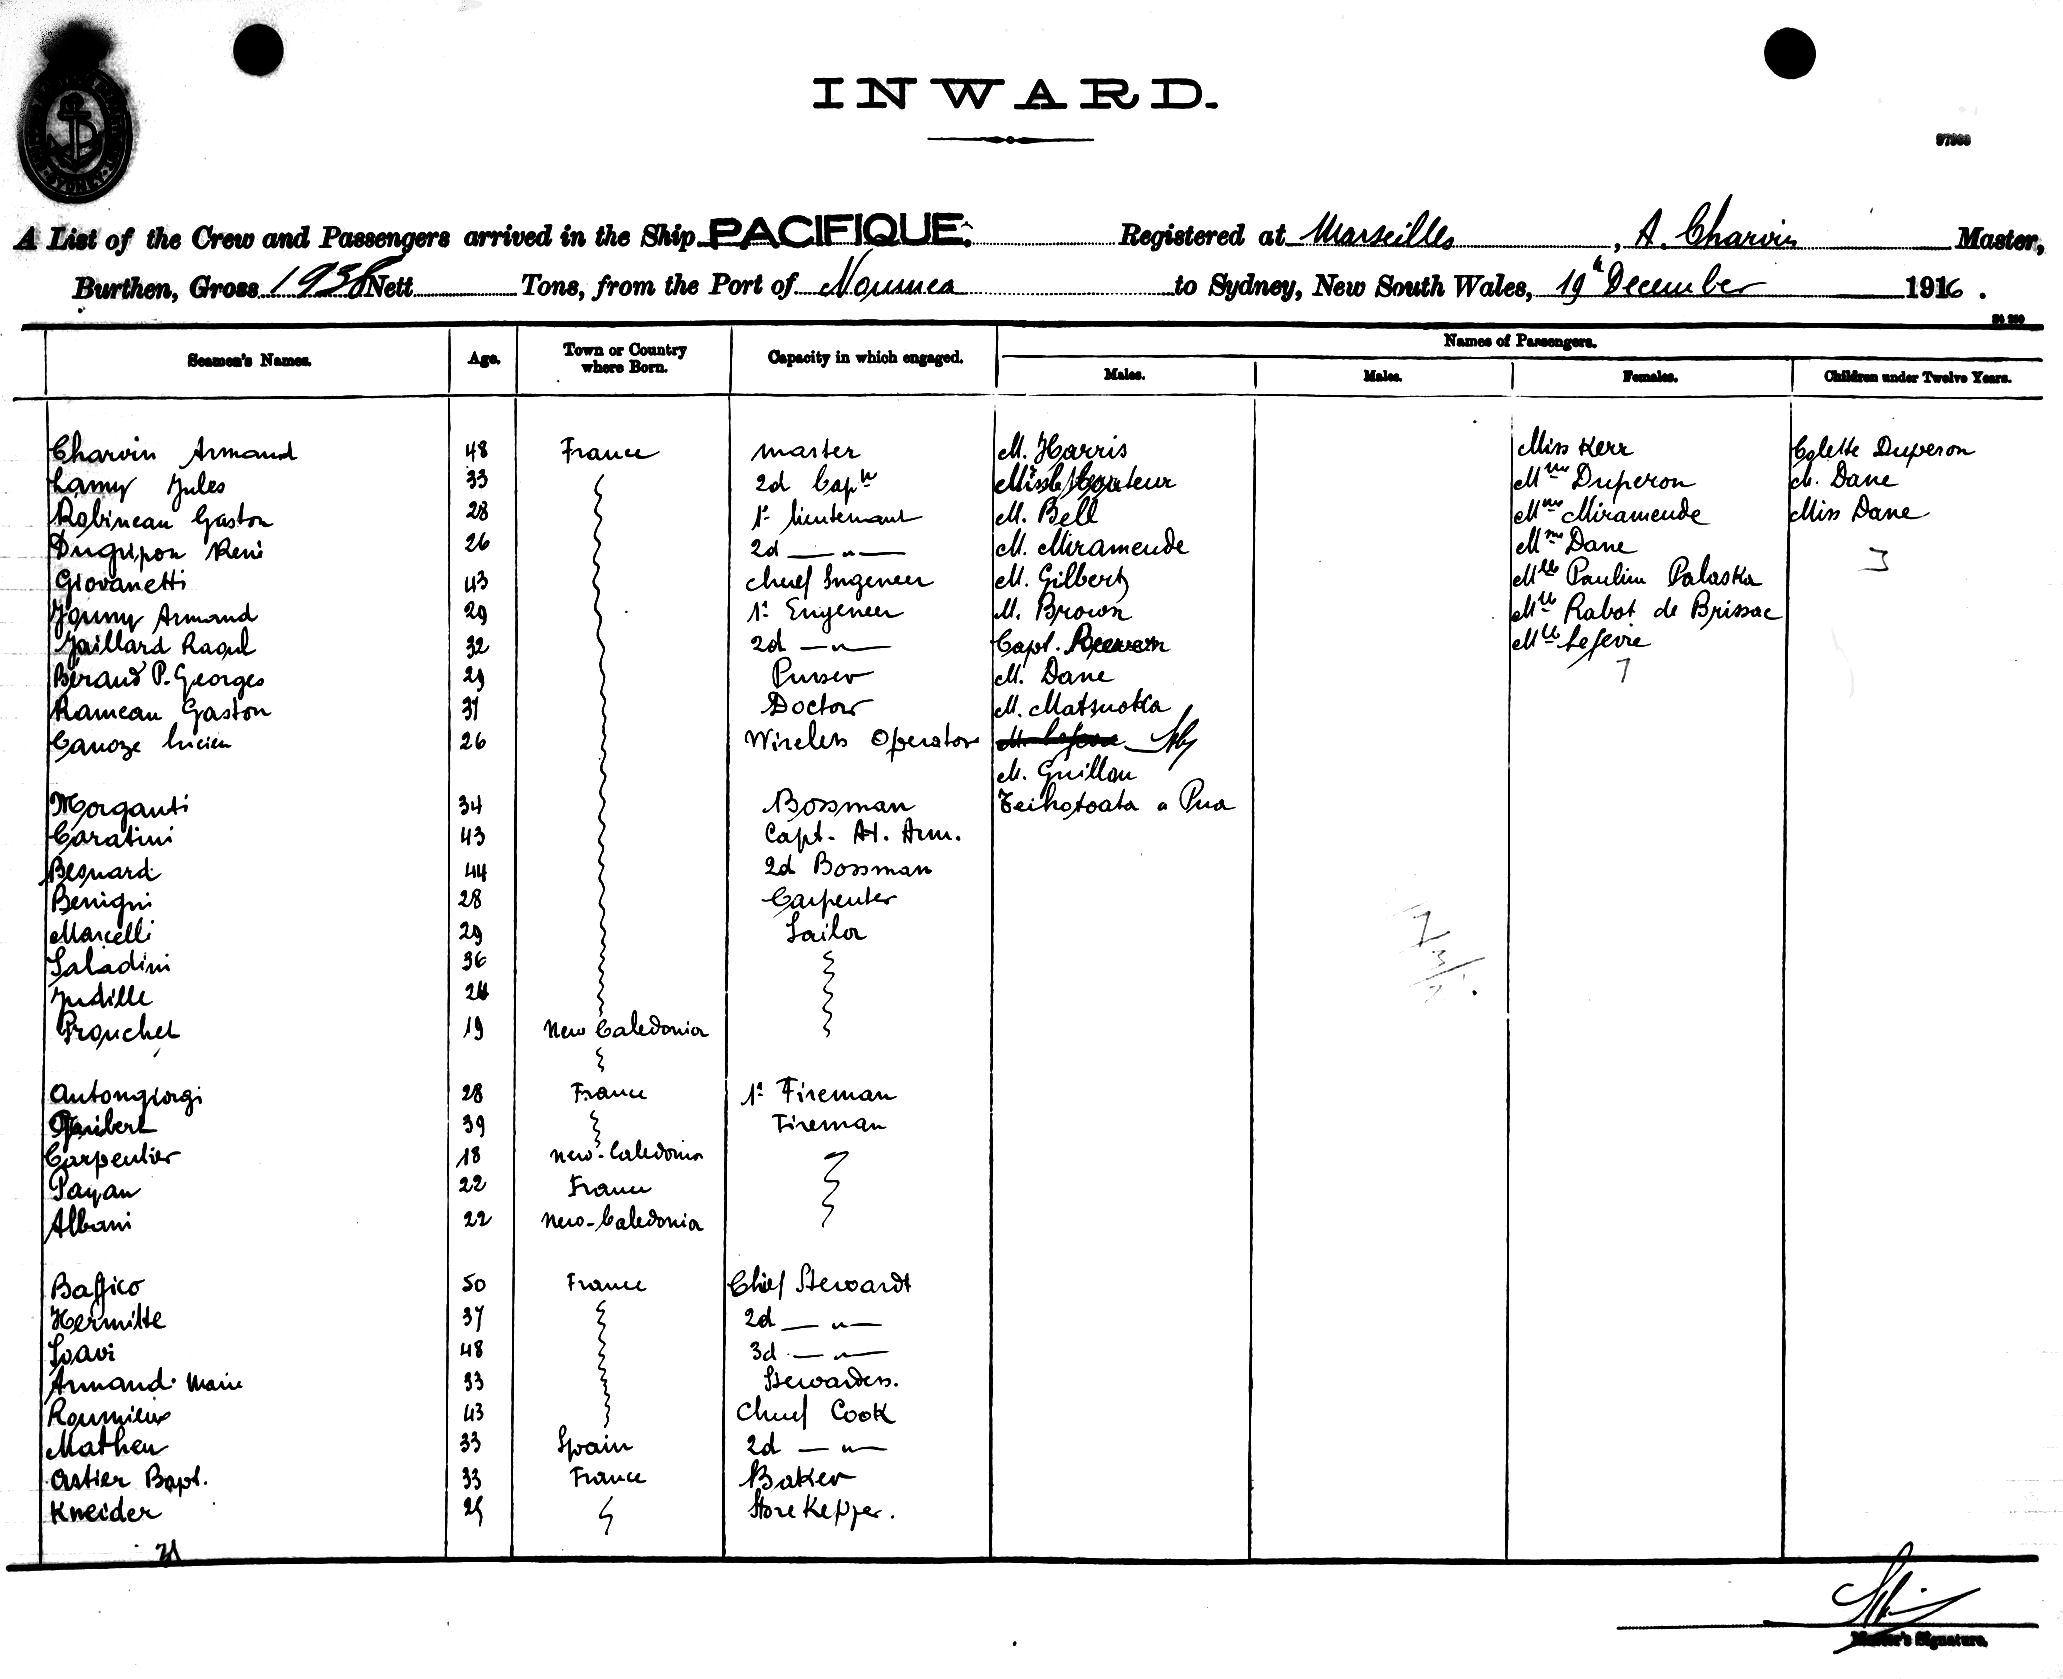 INWARD.
A List of the Crew and Passengers arrived in the Ship PACIFIQUE. Registered at Marseilles, A. Charvin Master,
Burthen, Gross 1938 Nett Tons, from the Port of Noumea to Sydney, New South Wales, 19th December 1916.
Names of Passengers.
Seamen's Names. Age. Town or Country where Born. Capacity in which engaged. Males. Males. Females. Children under Twelve Years.
Charvin Armand 48 France master M. Harris Miss Kerr Colette Duperon
Lamy Jules 33 2d Capn Mme Duperon M. Dane
Robineau Gaston 28 1r lieutenant M. Bell Mme Miramende Miss Dane
René 26 2d — " — M. Miramende Mme Dane 3
Giovanetti 43 chief Ingeneer M. Gilbert Mlle Paulin Palaska
Armand 29 1r Engeneer M. Brown Mlle Rabot de Brissac
Jaillard Raoul 32 2d — " — Capt. Mlle Lefevre
Béraud P. Georges 29 Purser M. Dane 7
Rameau Gaston 37 Doctor M. Matsuoka
Canoze Lucien 26 Wireless Operator M. Lefevre
M. Guillou
Morganti 34 Bossman Teihotoata a Pua
Caratini 43 Capt. At. Arm.
Besnard 44 2d Bossman
Benigni 28 Carpenter
Marcelli 29 Sailor
Saladini 36
Judille 24
Prouchet 19 New Caledonia
Antongiorgi 28 France 1r Fireman
39 Fireman
Carpentier 18 New-Caledonia
Payan 22 France
Albani 22 New-Caledonia
Baffico 50 France Chief Stewardt
Hermitte 37 2d — " —
Soavi 48 3d — " —
Armand Marie 33 Stewardess.
Roumieux 43 Chief Cook
Matheu 33 Spain 2d — " —
Astier Bapt. 33 France Baker
Kneider 29 Storekepper.
31
Master's Signature.